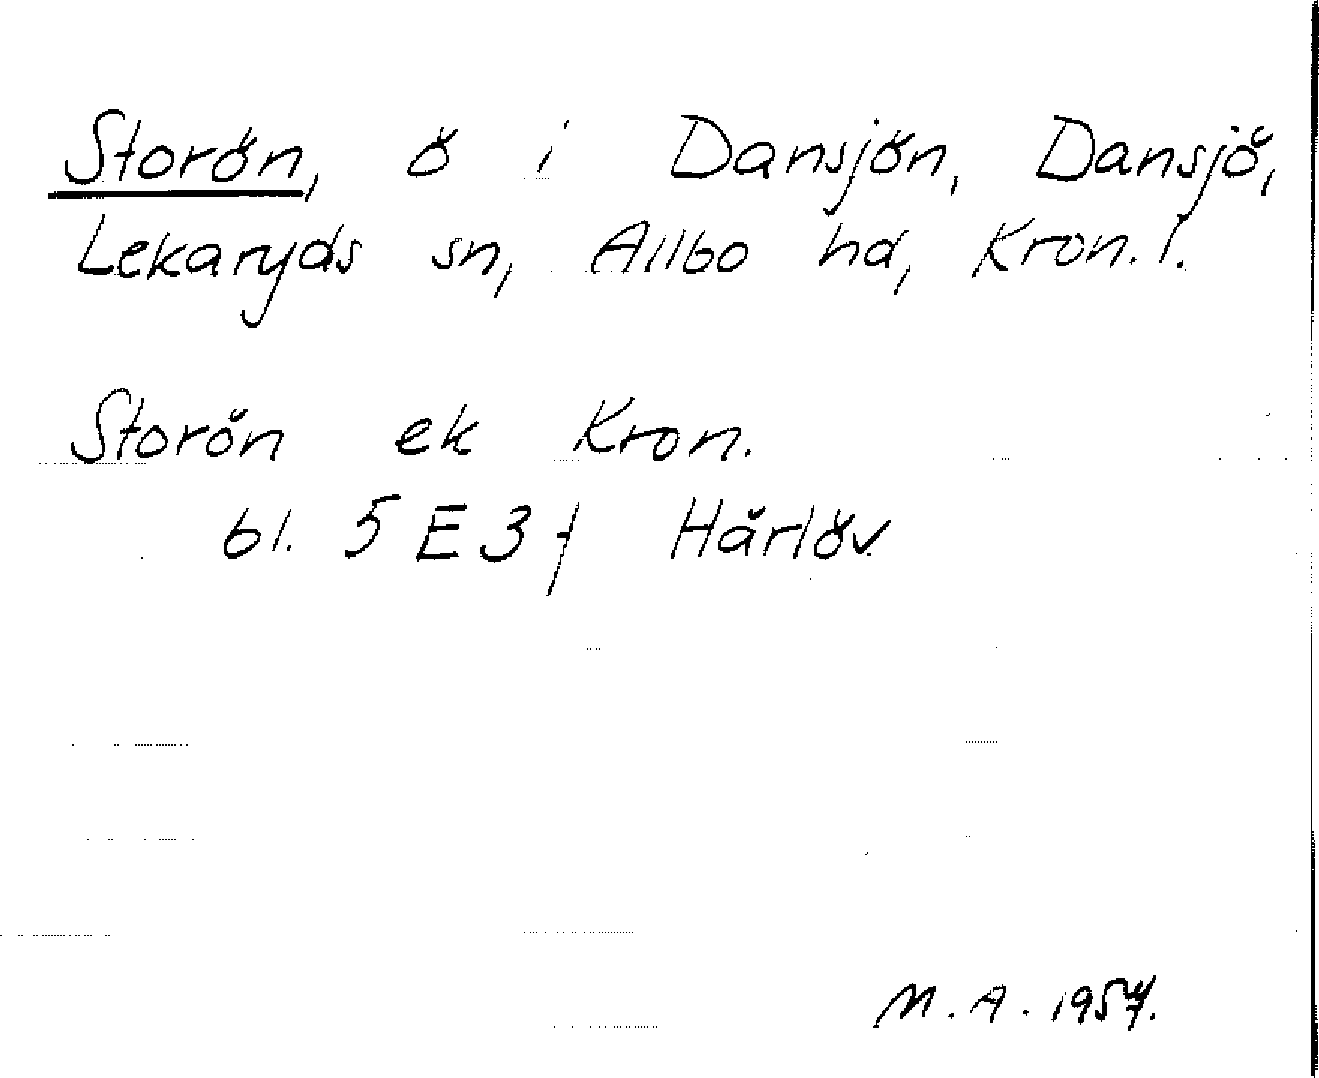 Storön, ö i Dansjön, Dansjö,
Lekaryds sn, Allbo hd, Kron. l.
Storön ek Kron.
bl. 5 E 3 f Härlöv.
M. A. 1957.